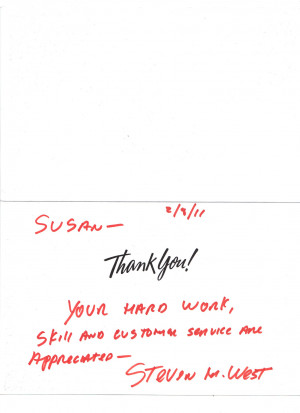 2/9/11
SUSAN—
Thank You!
YOUR HARD WORK,
SKILL AND CUSTOMER SERVICE ARE
APPRECIATED—
STEVEN M. WEST